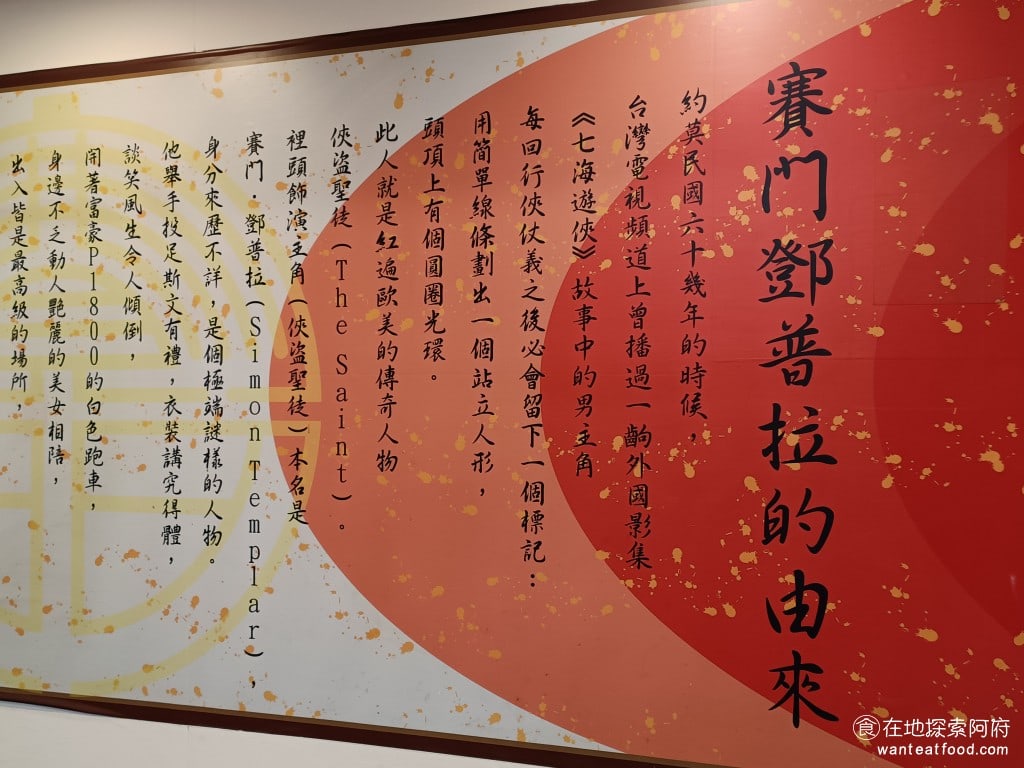 賽門鄧普拉的由來
約莫民國六十幾年的時候，
台灣電視頻道上曾播過一齣外國影集
《七海遊俠》故事中的男主角
每回行俠仗義之後必會留下一個標記：
用簡單線條劃出一個站立人形，
頭頂上有個圓圈光環。
此人就是紅遍歐美的傳奇人物
俠盜聖徒(The Saint)。
裡頭飾演主角(俠盜聖徒)本名是
賽門．鄧普拉(Simon Templar)，
身分來歷不詳，是個極端謎樣的人物。
他舉手投足斯文有禮，衣裝講究得體，
談笑風生令人傾倒，
開著富豪P1800的白色跑車，
身邊不乏動人艷麗的美女相陪，
出入皆是最高級的場所，
食在地探索阿府
wanteatfood.com